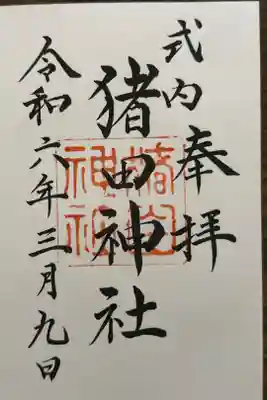 式内
奉拝
猪田神社
令和六年三月九日